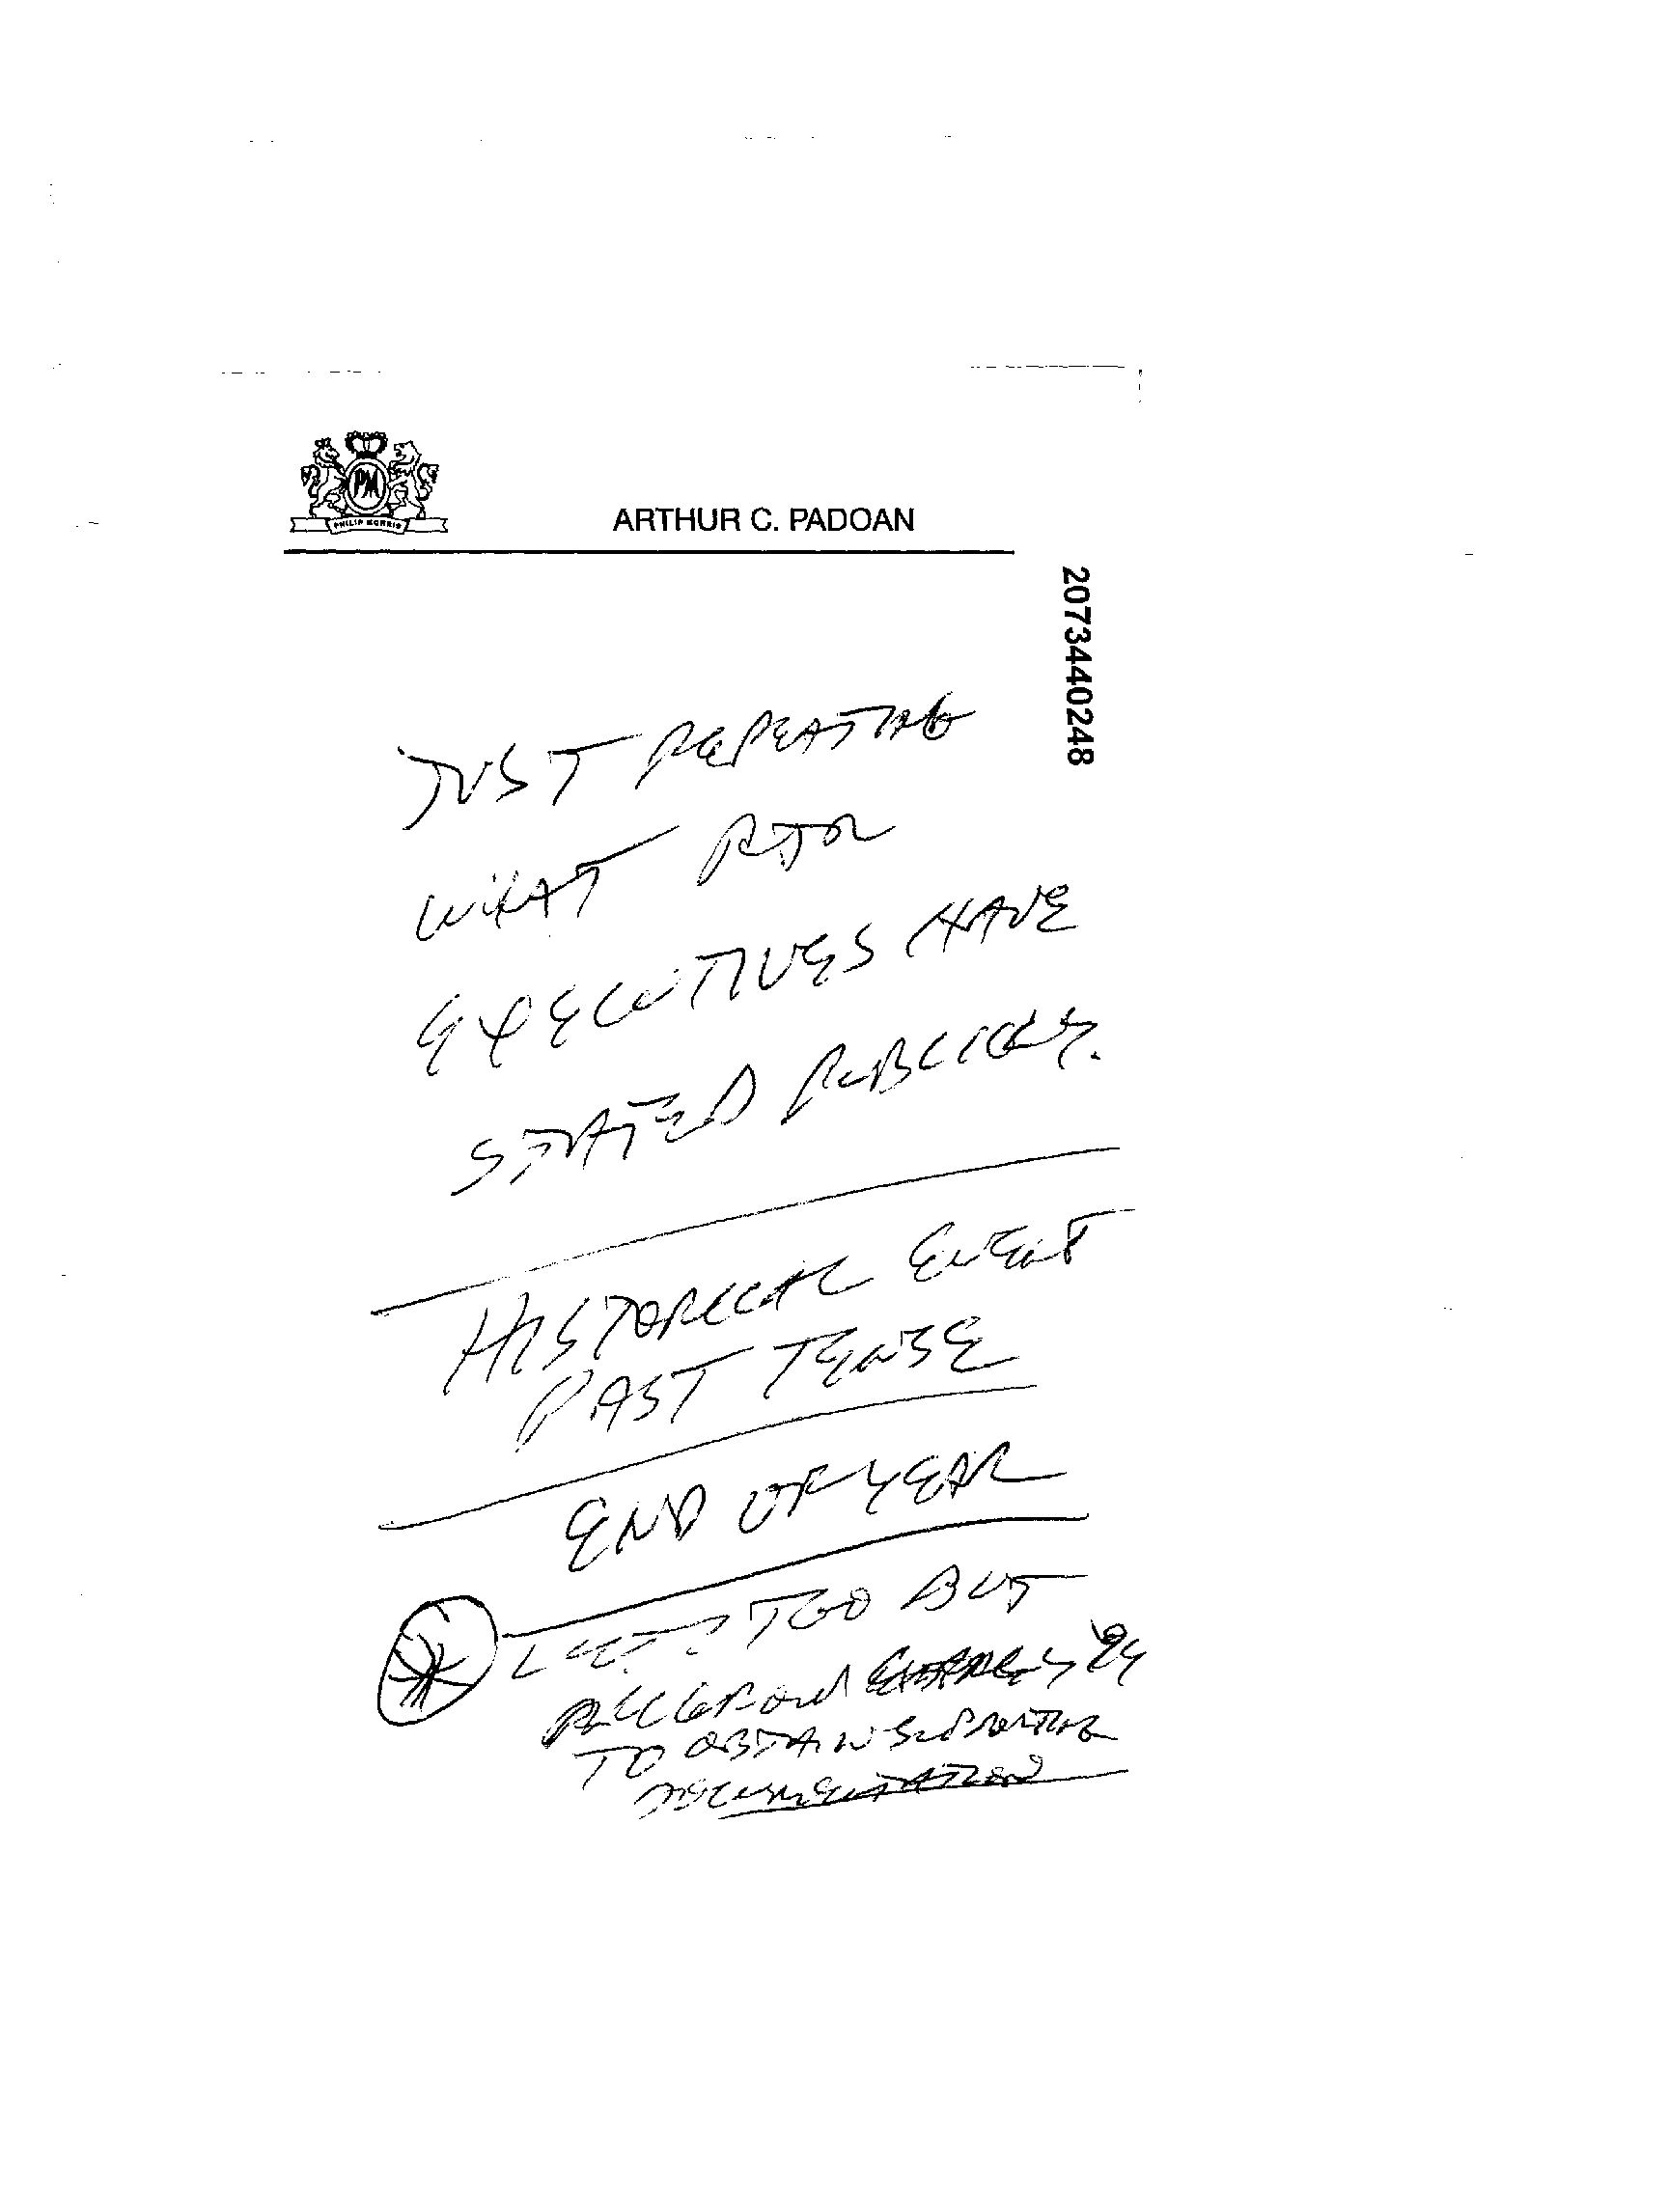 PM
PHILIP MORRIS
ARTHUR C. PADOAN
2073440248
JUST REPEATING
WHAT RJR
EXECUTIVES HAVE
STATED PUBLICLY.
HISTORICAL EVENT
PAST TENSE
END OF YEAR
TOO BUT
'94
TO OBTAIN SUPPORTING
DOCUMENTATION